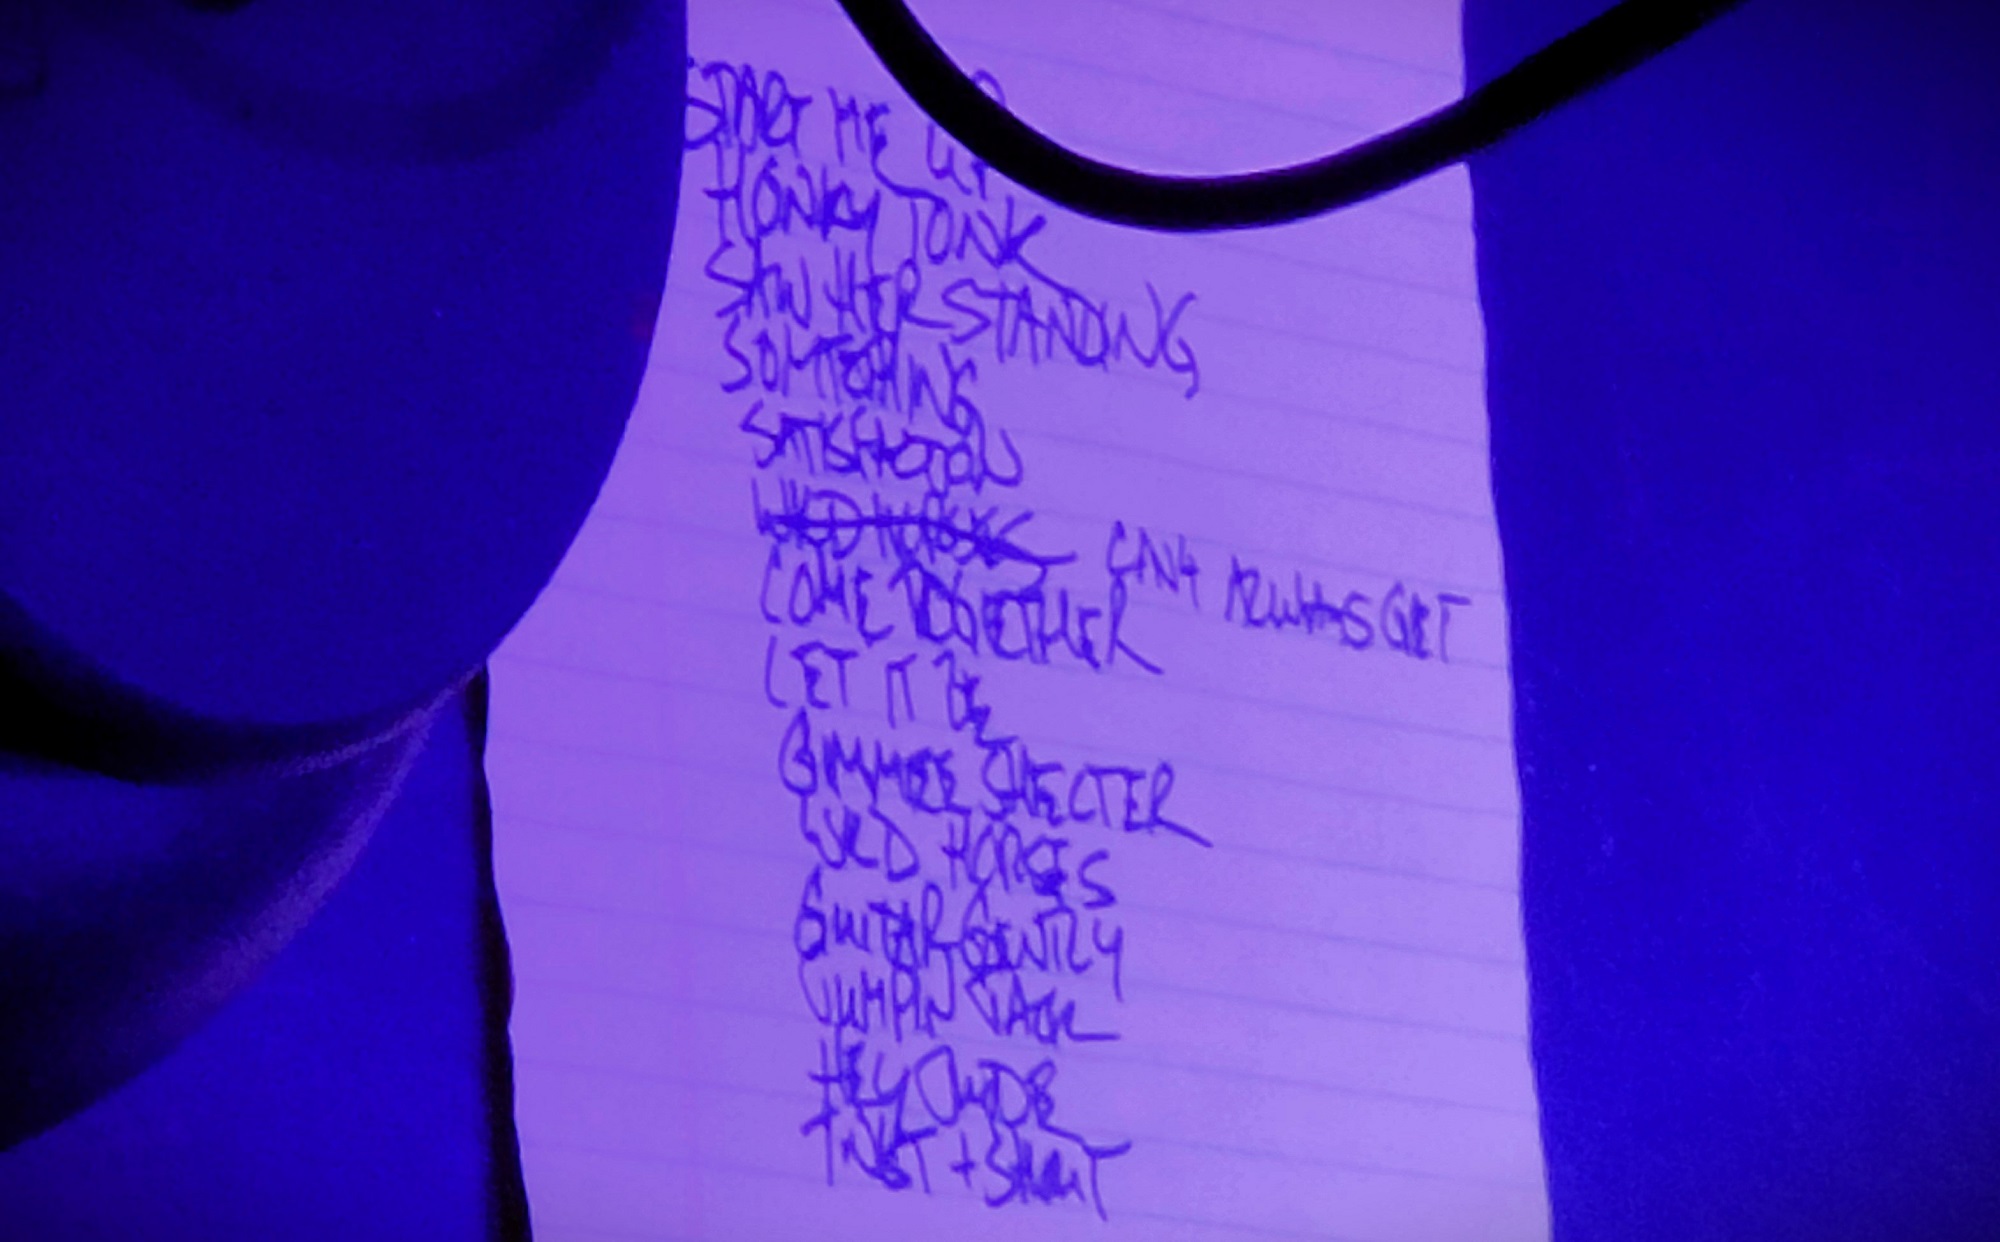 START ME UP
HONKY TONK
SAW HER STANDING
SOMETHING
SATISFACTION
WILD HORSES CAN'T ALWAYS GET
COME TOGETHER
LET IT BE
GIMMEE SHELTER
WILD HORSES
GUITAR GENTLY
JUMPIN JACK
HEY JUDE
TWIST + SHOUT